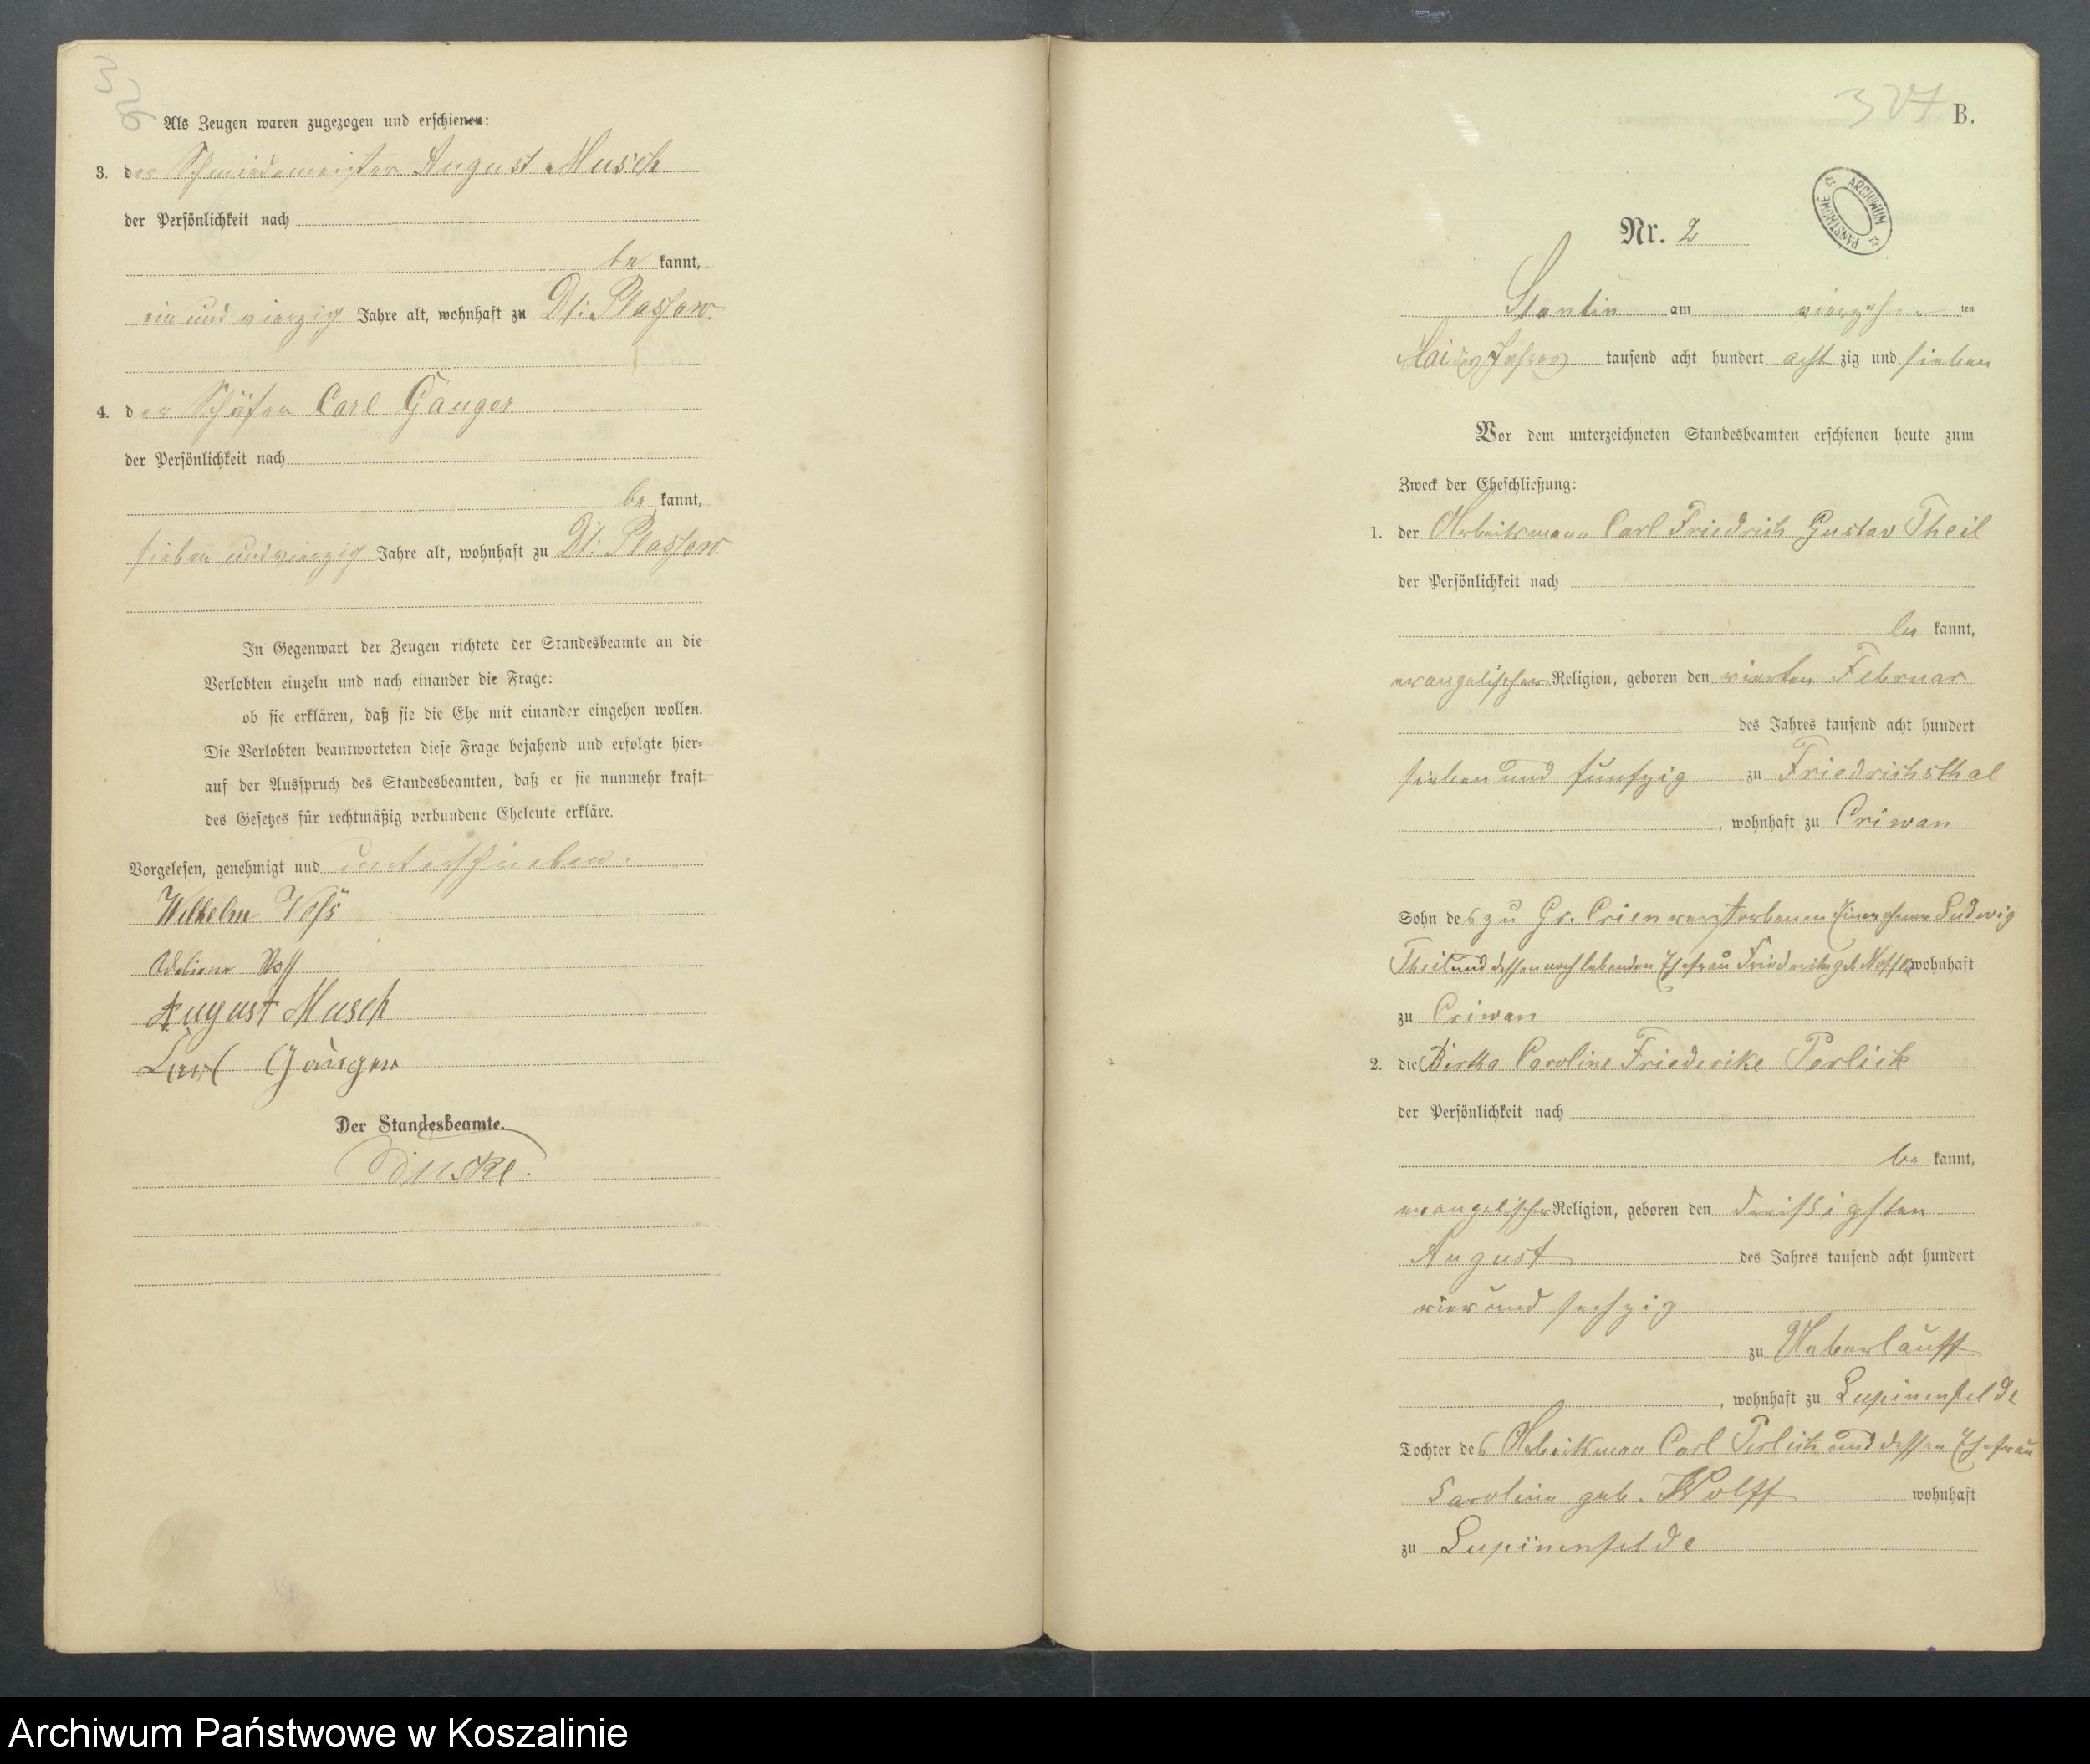 326
Als Zeugen waren zugezogen und erschienen:
3. der Schmiedemeister August Musch
der Persönlichkeit nach
be kannt,
ein und vierzig Jahre alt, wohnhaft zu Dt: Plassow.
4. der Schäfer Carl Gauger
der Persönlichkeit nach
be kannt,
sieben und vierzig Jahre alt, wohnhaft zu Dt: Plassow.
In Gegenwart der Zeugen richtete der Standesbeamte an die
Verlobten einzeln und nach einander die Frage:
ob sie erklären, daß sie die Ehe mit einander eingehen wollen.
Die Verlobten beantworteten diese Frage bejahend und erfolgte hier-
auf der Ausspruch des Standesbeamten, daß er sie nunmehr kraft
des Gesetzes für rechtmäßig verbundene Eheleute erkläre.
Vorgelesen, genehmigt und unterschrieben.
Wilhelm Voss
Voss
August Musch
Carl Gauger
Der Standesbeamte.
327
B.
ARCHIWUM PAŃSTWOWE
Nr. 2
Stantin am vierzehn ten
Mai des Jahres tausend acht hundert acht zig und sieben
Vor dem unterzeichneten Standesbeamten erschienen heute zum
Zweck der Eheschließung:
1. der Arbeitsmann Carl Friedrich Gustav Theil
der Persönlichkeit nach
be kannt,
evangelischer Religion, geboren den vierten Februar
des Jahres tausend acht hundert
sieben und funfzig zu Friedrichsthal
, wohnhaft zu Criwan
Sohn des zu Gr. Crien verstorbenen Einwohner Ludwig
Theil und dessen noch lebenden Ehefrau Friederike geb. wohnhaft
zu Criwan
2. die Bertha Caroline Friederike Perlick
der Persönlichkeit nach
be kannt,
evangelischer Religion, geboren den dreißigsten
August des Jahres tausend acht hundert
vier und sechzig
zu Ueberlauff
, wohnhaft zu Lupinenfelde
Tochter des Arbeitsmann Carl Perlick und dessen Ehefrau
Caroline geb. Wolff wohnhaft
zu Lupinenfelde
Archiwum Państwowe w Koszalinie